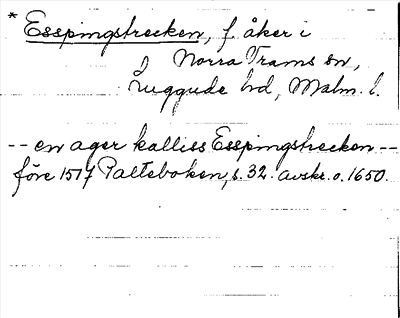 * Esspingstrecken, f. åker i
J Norra Trams sn,
Luggude hd, Malm. l.
-- en ager kalliss Esspingstrecken --
före 1517 Palteboken, s. 32. avskr. o. 1650.